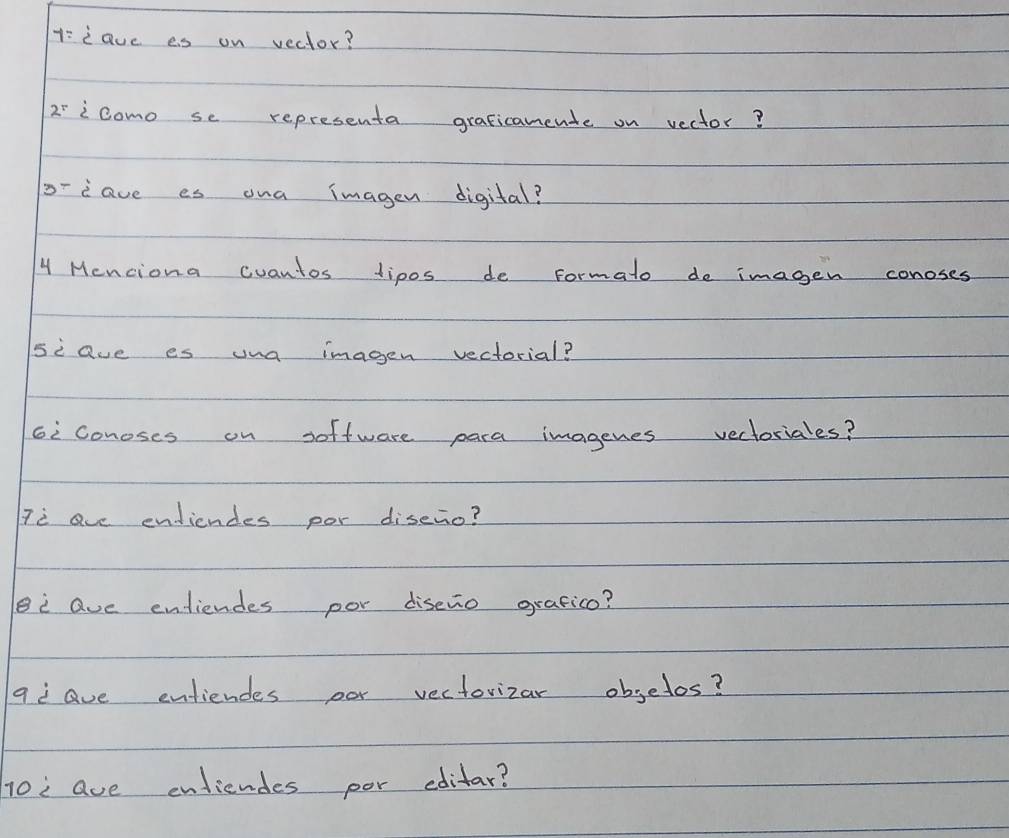 1=¿Que es un vector?
2=¿Como se representa graficamente un vector?
3-¿Que es una imagen digital?
4 Menciona cuantos tipos de formato de imagen conoses
5¿Que es una imagen vectorial?
6¿Conoses un software para imagenes vectoriales?
7¿Que entiendes por diseño?
8¿Que entiendes por diseño grafico?
9¿Que entiendes por vectorizar obgetos?
10¿Que entiendes por editar?